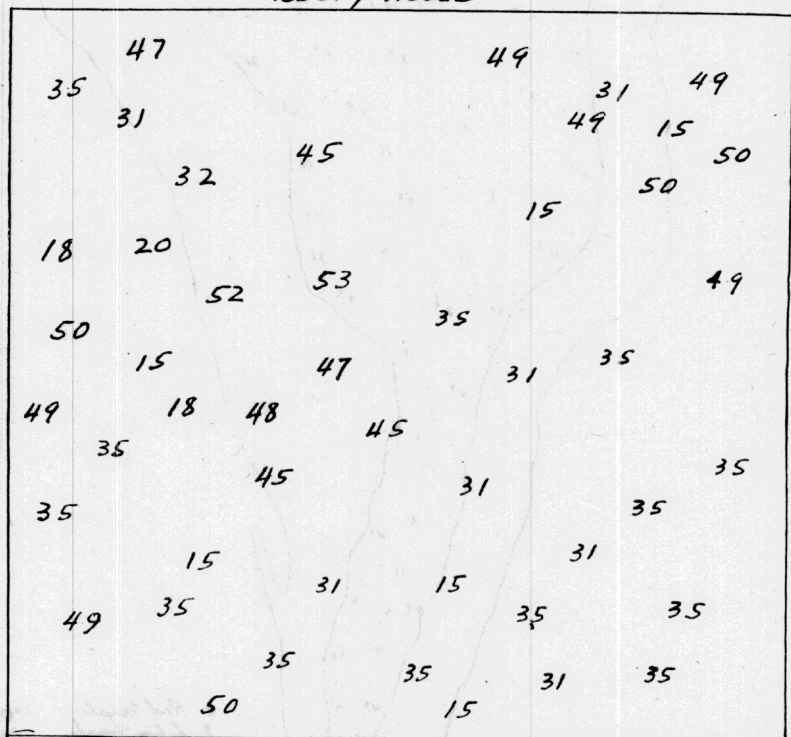 47 49
35 31 49
31 49 15
45 50
32 50
15
18 20
52 53 49
35
50
15 47 31 35
49 18 48
45
35
45 31 35
35 35
15 31
31 15
49 35 35 35
35 35 31 35
50 15